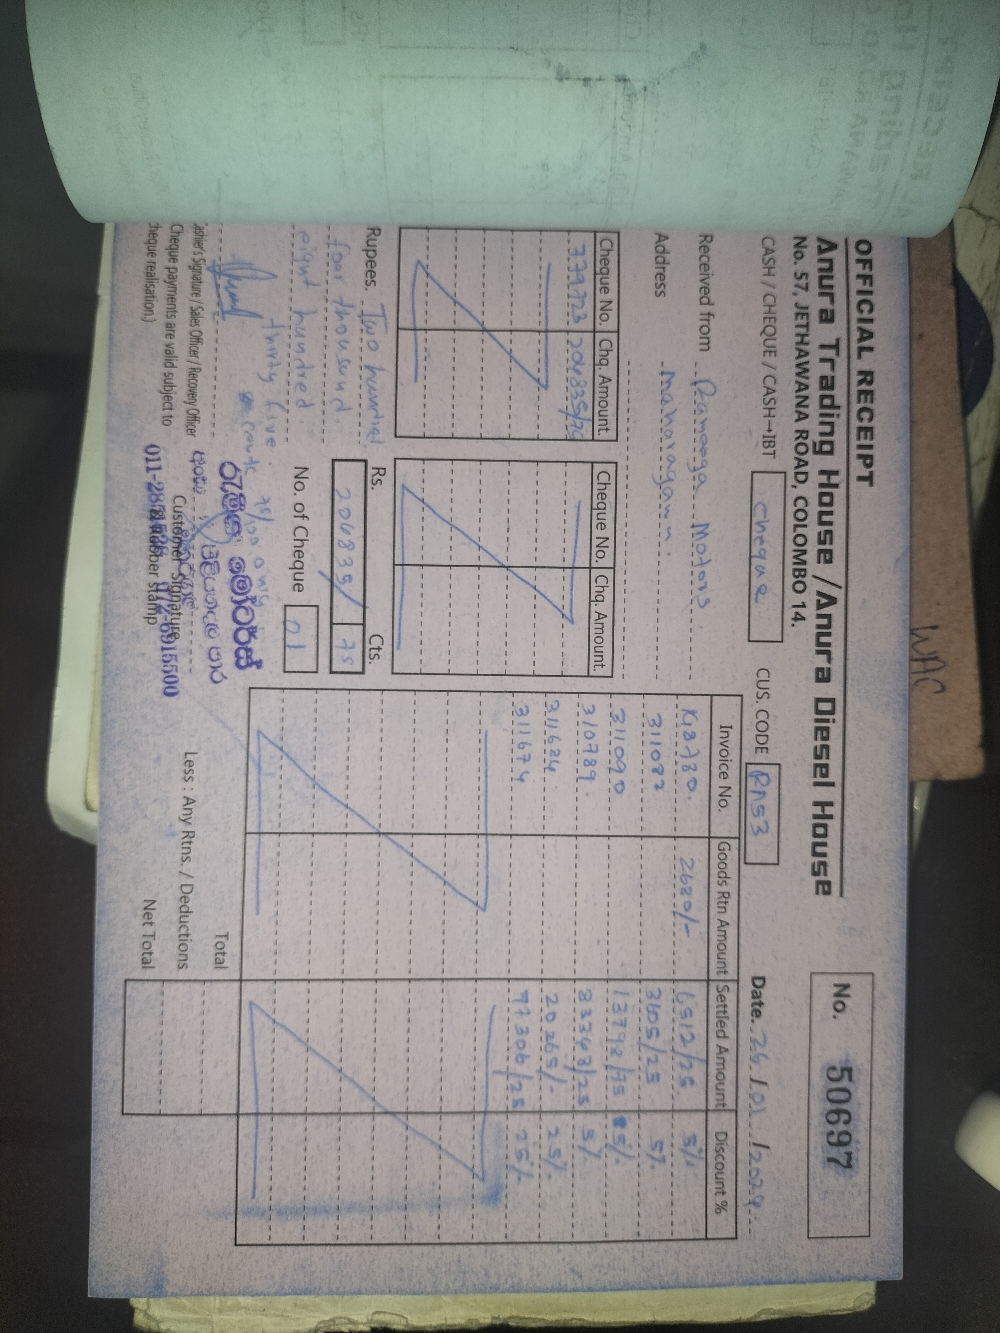 OFFICIAL RECEIPT
Anura Trading House / Anura Diesel House
No. 57, JETHAWANA ROAD, COLOMBO 14.
No. 50697
CASH / CHEQUE / CASH→IBT cheque CUS. CODE RA53 Date. 26/01/2024
Received from Ramega Motors.
Address Maharagama.
Cheque No. Chq. Amount
339723 204835/75
Cheque No. Chq. Amount
Rupees. Two hundred
four thousand
eight hundred
thirty five.
cents 75/100 only
Rs. 204835/ Cts. 75
No. of Cheque 01
Invoice No. Goods Rtn Amount Settled Amount Discount %
K18730. 2680/- 6512/25 5%
311087 3605/25 5%
311090 13798/75 5%
310789. 83348/25 5%
311684. 20265/- 25%
311674 77306/25 25%
Total
Less : Any Rtns. / Deductions
Net Total
Cashier's Signature / Sales Officer / Recovery Officer
Cheque payments are valid subject to
cheque realisation.)
මෝටර්ස්
Customer Signature
& Rubber Stamp